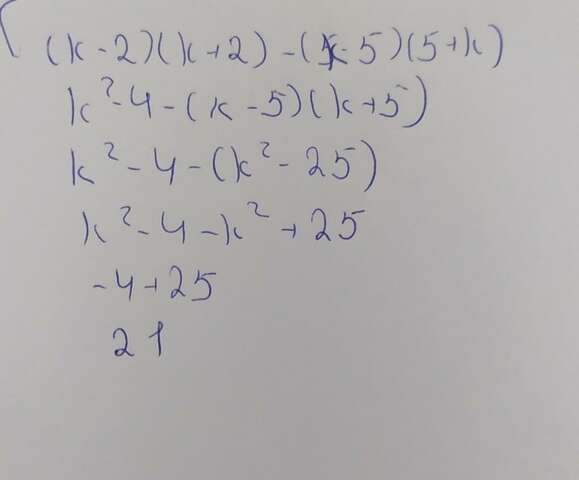 (k-2)(k+2)-(k-5)(5+k)
k²-4-(k-5)(k+5)
k²-4-(k²-25)
k²-4-k²+25
-4+25
21